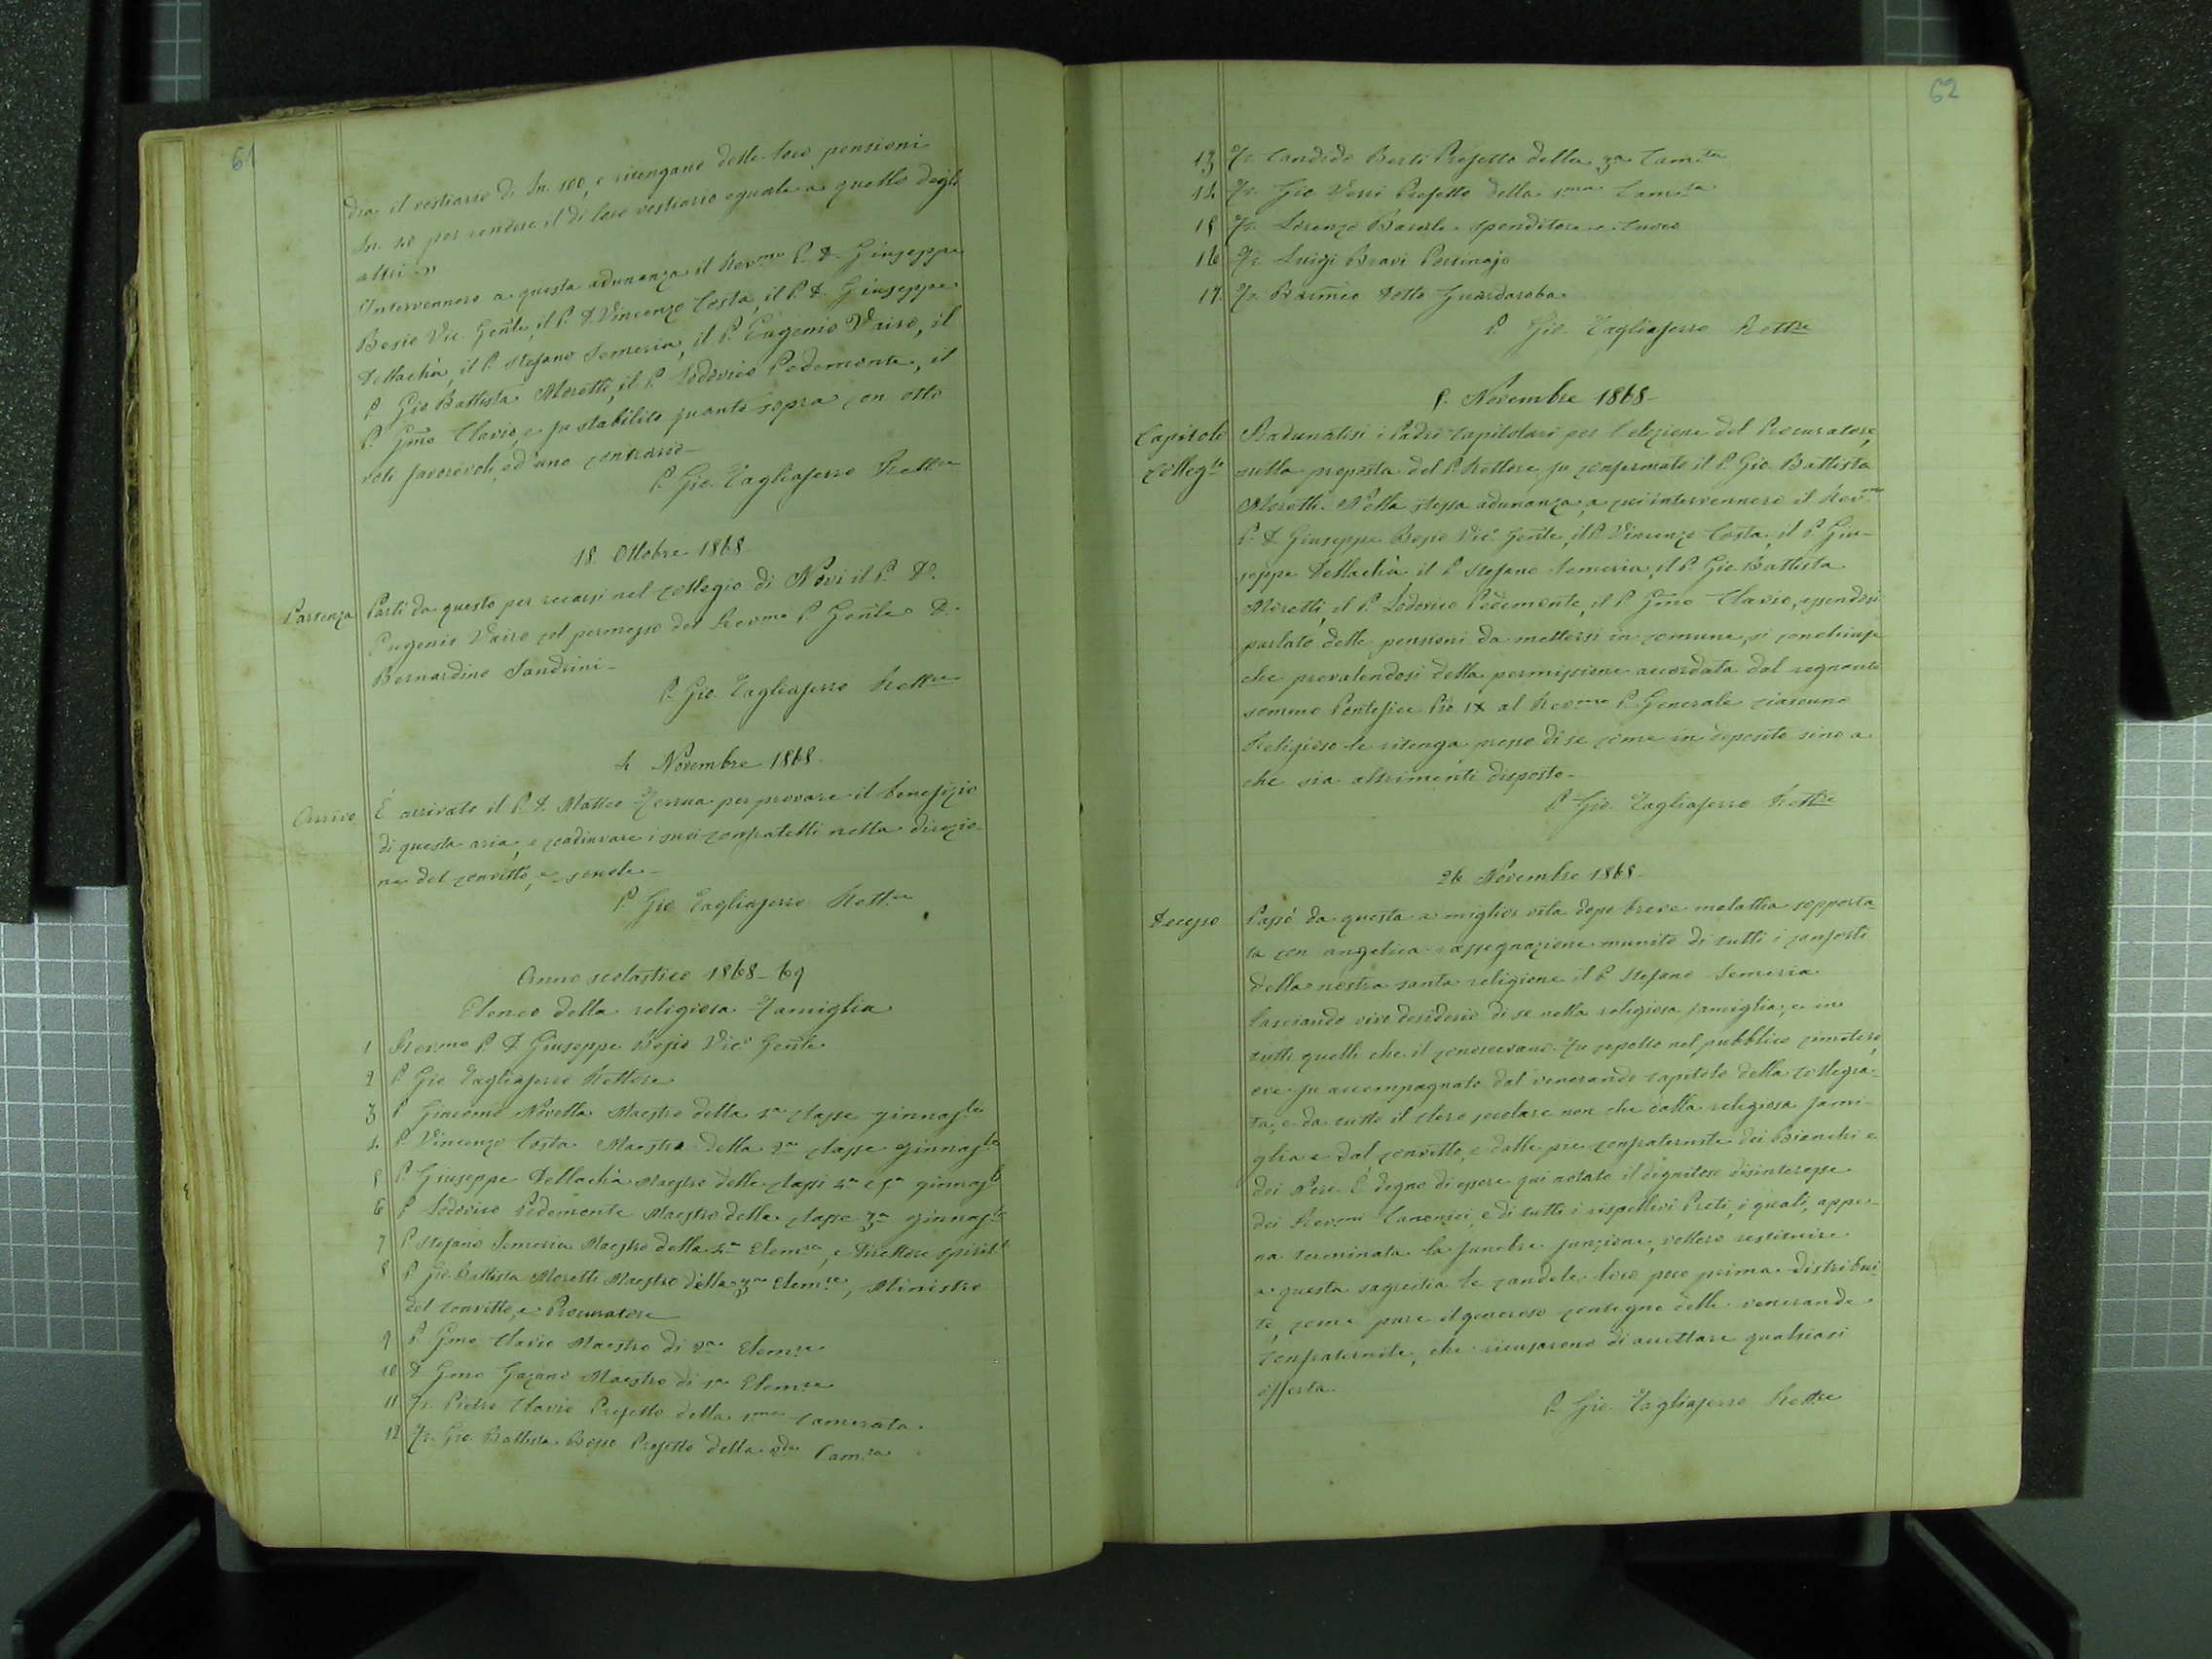 61
dia il vestiario di Ln. 100, e ritengano delle loro pensioni
Ln. 20 per rendere il di loro vestiario eguale a quello degli
altri "
Intervennero a questa adunanza il Rev.mo P. D. Giuseppe
Besio Vic. Gen̄le, il P. D. Vincenzo Costa, il P. D. Giuseppe
Dellachà, il P. Stefano Semeria, il P. Eugenio Vairo, il
P. Gio Battista Moretti, il P. Lodovico Pedemonte, il
P. Gm̄o Clavio, e fu stabilito quanto sopra con otto
voti favorevoli, ed uno contrario-
P. Gio. Tagliaferro Rett.re
18. Ottobre 1868
Partenza Partì da questo per recarsi nel collegio di Novi il P. D.
Eugenio Vairo col permesso del Rev.mo P. Gen̄le D.
Bernardino Sandrini-
P. Gio. Tagliaferro Rett.re
4 Novembre 1868-
Arrivo È arrivato il P. D. Matteo Ferrua per provare il benefizio
di questa aria, e coadiuvare i suoi confratelli nella direzio-
ne del convitto, e scuole-
P. Gio Tagliaferro Rett.re
Anno scolastico 1868-69
Elenco della religiosa Famiglia
1 Rev.mo P. D. Giuseppe Besio Vic. Gen̄le
2 P. Gio Tagliaferro Rettore
3 P. Giacomo Novella Maestro della 1a classe ginnas.le
4. P. Vincenzo Costa Maestro della 2a classe ginnas.le
5 P. Giuseppe Dellachà Maestro delle classi 4a e 5a ginnas.li
6 P. Lodovico Pedemonte Maestro della classe 3a ginnas.le
7 P. Stefano Semeria Maestro della 4a Elem.re, e Direttore spirit.le
8 P. Gio. Battista Moretti Maestro della 3a Elem.re, Ministro
del convitto, e Procuratore
9 P. Gmo Clavio Maestro di 2a Elem.re
10 D. Gmo Gazano Maestro di 1a Elem.re
11 Fr. Pietro Clavio Prefetto della 1ma camerata
12 Fr. Gio. Battista Besio Prefetto della 2da Cam.ta
62
13 Fr. Candido Berti Prefetto della 3a Cam.ta
14 Fr. Gio Verri Prefetto della Cam.ta
15 Fr. Lorenzo Barale spenditore e cuoco
16 Fr. Luigi Bravi Portinajo
17. Fr. Barm̄eo Dotto Guardaroba
P. Gio. Tagliaferro Rett.re
5. Novembre 1868-
Capitolo Radunatisi i Padri capitolari per l'elezione del Procuratore,
Colleg.le sulla proposta del P. Rettore fu confermato il P. Gio Battista
Moretti. Nella stessa adunanza, a cui intervennero il Rev.mo
P. D. Giuseppe Besio Vic. Gen̄le, il P. Vincenzo Costa, il P. Giu-
seppe Dellachà, il P. Stefano Semeria, il P. Gio Battista
Moretti, il P. Lodovico Pedemonte, il P. Gm̄o Clavio, essendosi
parlato delle pensioni da mettersi in comune, si conchiuse
che prevalendosi della permissione accordata dal regnante
sommo Pontefice Pio IX al Rev.mo P. Generale ciascuno
Religioso le ritenga presso di se come in deposito sino a
che sia altrimenti disposto-
P. Gio. Tagliaferro Rett.re
26 Novembre 1868-
Decesso Passò da questa a miglior vita dopo breve malattia sopporta-
ta con angelica rassegnazione munito di tutti i conforti
della nostra santa religione il P. Stefano Semeria
lasciando vivo desiderio di se nella religiosa famiglia, e in
tutti quelli che il conoscevano. Fu sepolto nel pubblico cimitero,
ove fu accompagnato dal venerando capitolo della collegia-
ta, e da tutto il clero secolare non che dalla religiosa fami-
glia e dal convitto, e dalle due confraternite dei Bianchi e
dei Neri. È degno di essere qui notato il dignitoso disinteresse
dei Rev.mi Canonici, e di tutti i rispettivi Preti, i quali, appe-
na terminata la funebre funzione, vollero restituire
a questa sagrestia le candele loro poco prima distribui-
te, come pure il generoso contegno delle venerande
confraternite, che ricusarono di accettare qualsiasi
offerta.
P. Gio. Tagliaferro Rett.re